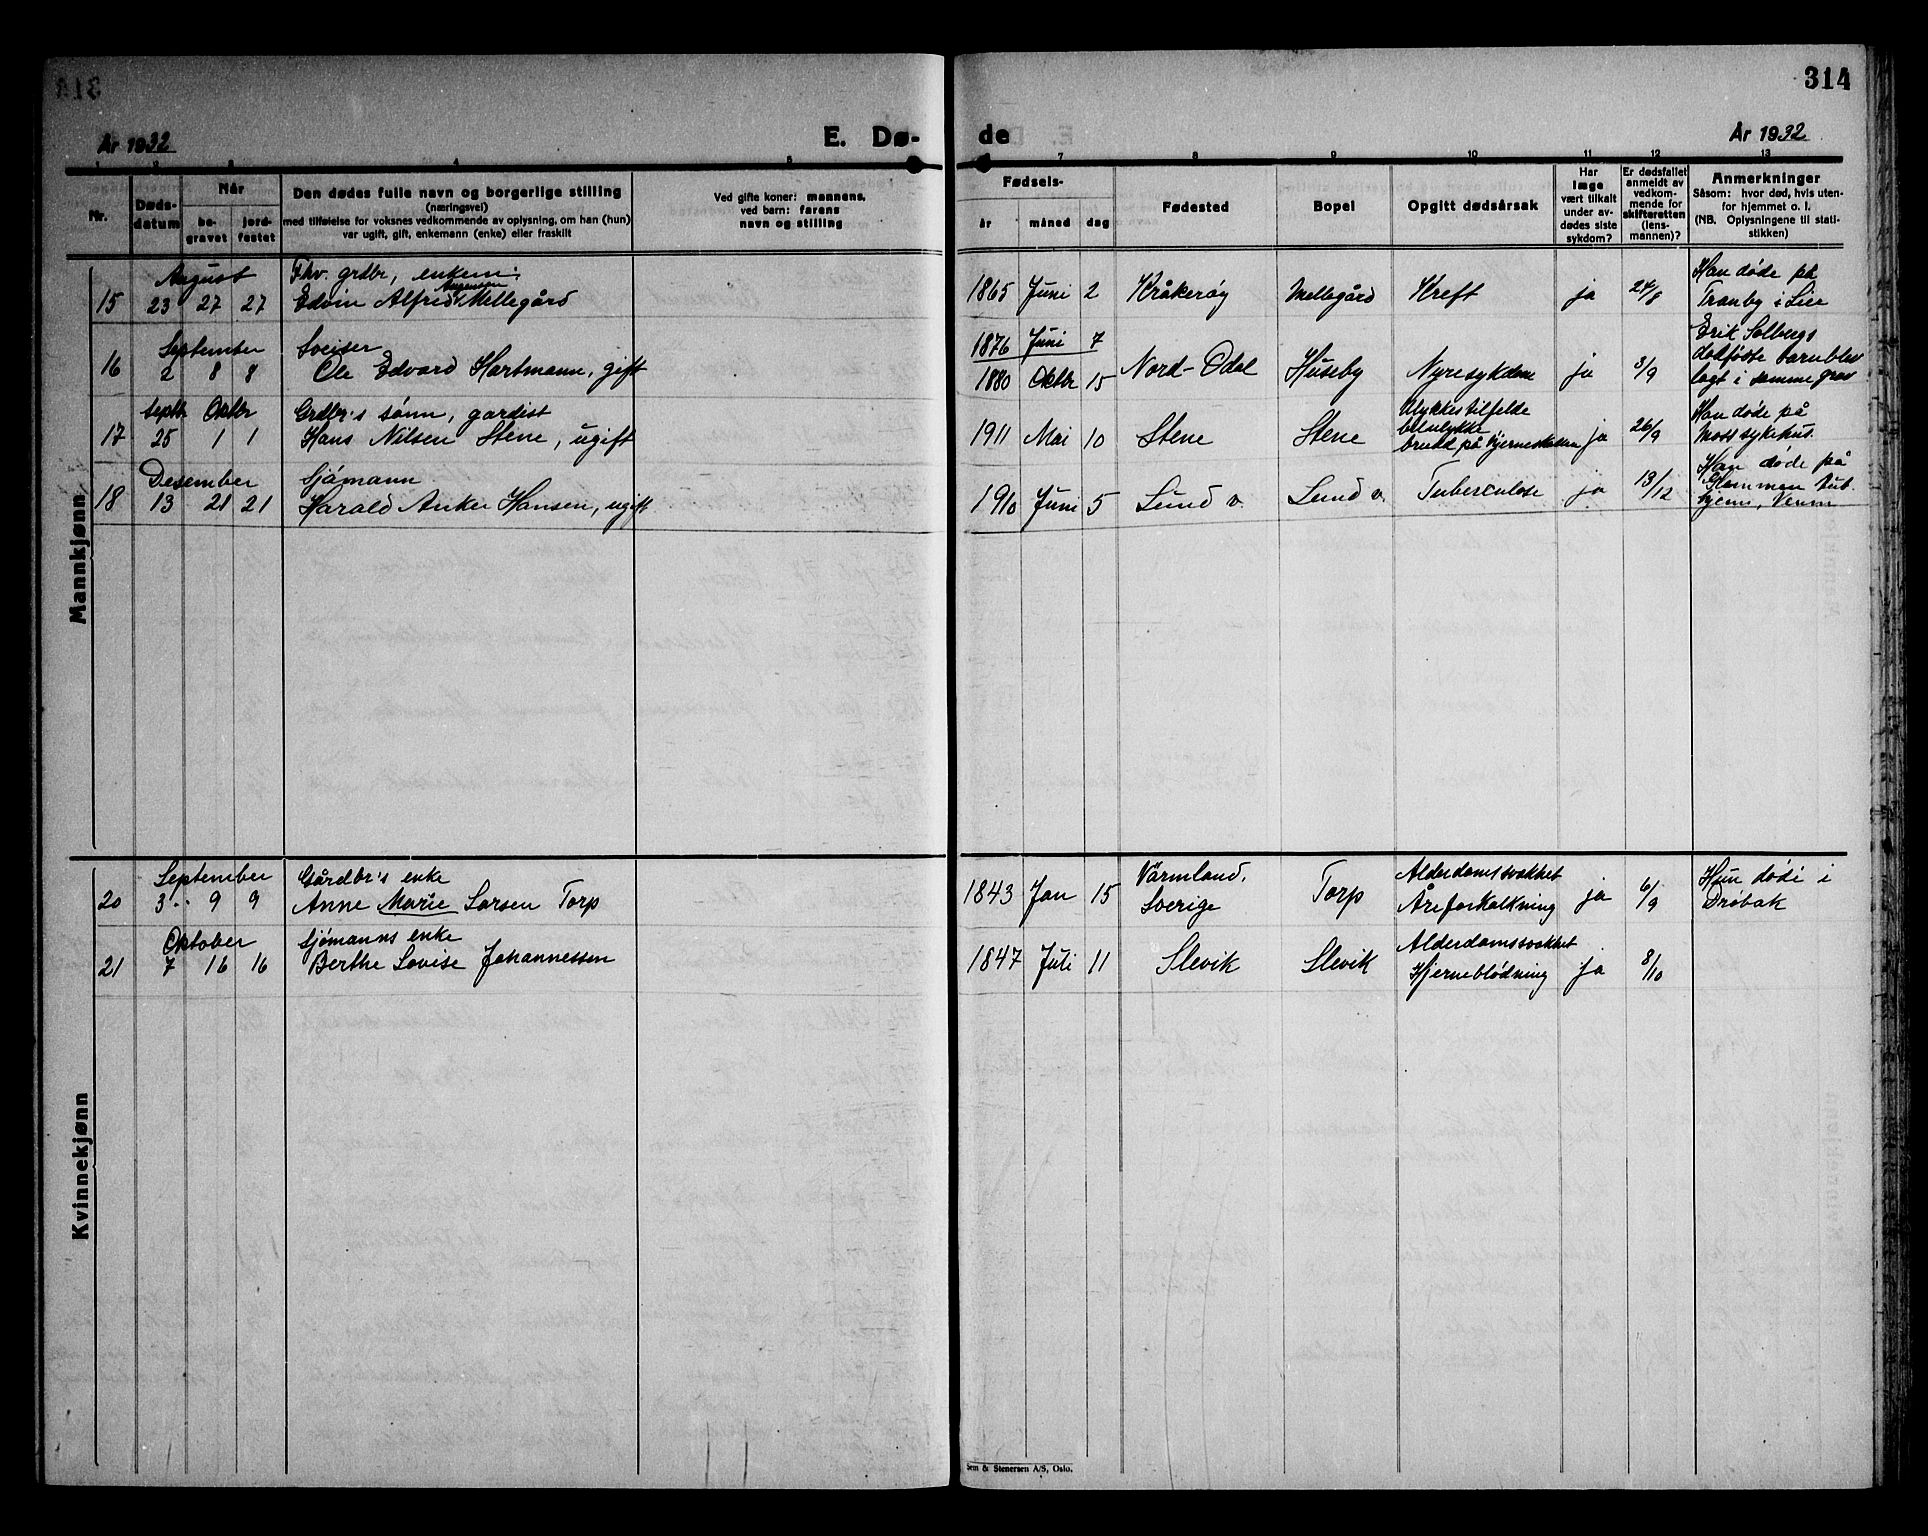 314
År 1932
E. Dø-
de
År 1932
1 2 3 4 5
7 8 9 10 11 12 13
Nr.
Døds-
datum
Når
be-
gravet
jord-
festet
Den dødes fulle navn og borgerlige stilling
(næringsvei)
med tilføielse for voksnes vedkommende av oplysning, om han (hun)
var ugift, gift, enkemann (enke) eller fraskilt
Ved gifte koner: mannens,
ved barn: farens
navn og stilling
Fødsels-
år måned dag
Fødested
Bopel
Opgitt dødsårsak
Har
læge
vært tilkalt
under av-
dødes siste
sykdom?
Er dødsfallet
anmeldt av
vedkom-
mende for
skifteretten
(lens-
mannen)?
Anmerkninger
Såsom: hvor død, hvis uten-
for hjemmet o. l.
(NB. Oplysningene til stati-
stikken)
Mannkjønn
August Fhv. grdbr, enkem:
15 23 27 27 Edvin Alfred Mellegård
1865 Juni 2 Kråkerøy Mellegård Kreft ja 24/8
Han døde på
Tranby i Lier
September Sveiser
16 2 8 8 Ole Edvard Hartmann, gift
1876 Juni 7
1880 Oktbr 15 Nord-Odal Huseby Nyresykdom ja 3/9
Erik Solbergs
dødfødte barn blev
lagt i samme grav
Septbr Oktbr Grdbr's sønn, gardist
17 25 1 1 Hans Nilsen Stene, ugift
1911 Mai 10 Stene Stene
Ulykkestilfelde
bilulykke
brudd på hjerneskallen ja 26/9
Han døde på
Moss sykehus.
Desember Sjømann
18 13 21 21 Harald Anker Hansen, ugift
1910 Juni 5 Lund v. Lund v. Tuberculose ja 13/12
Han døde på
Glommen tub.
hjem,
Kvinnekjønn
September Gårdbr's enke
20 3 9 9 Anne Marie Larsen Torp
1843 Jan 15 Värmland,
Sverige Torp
Alderdomssvakhet
Åreforkalkning ja 6/9
Hun døde i
Drøbak
Oktober Sjømanns enke
21 7 16 16 Berthe Lovise Johannessen
1847 Juli 11 Slevik Slevik
Alderdomssvakhet
Hjerneblødning ja 8/10
Sem & Stenersen A/S, Oslo.